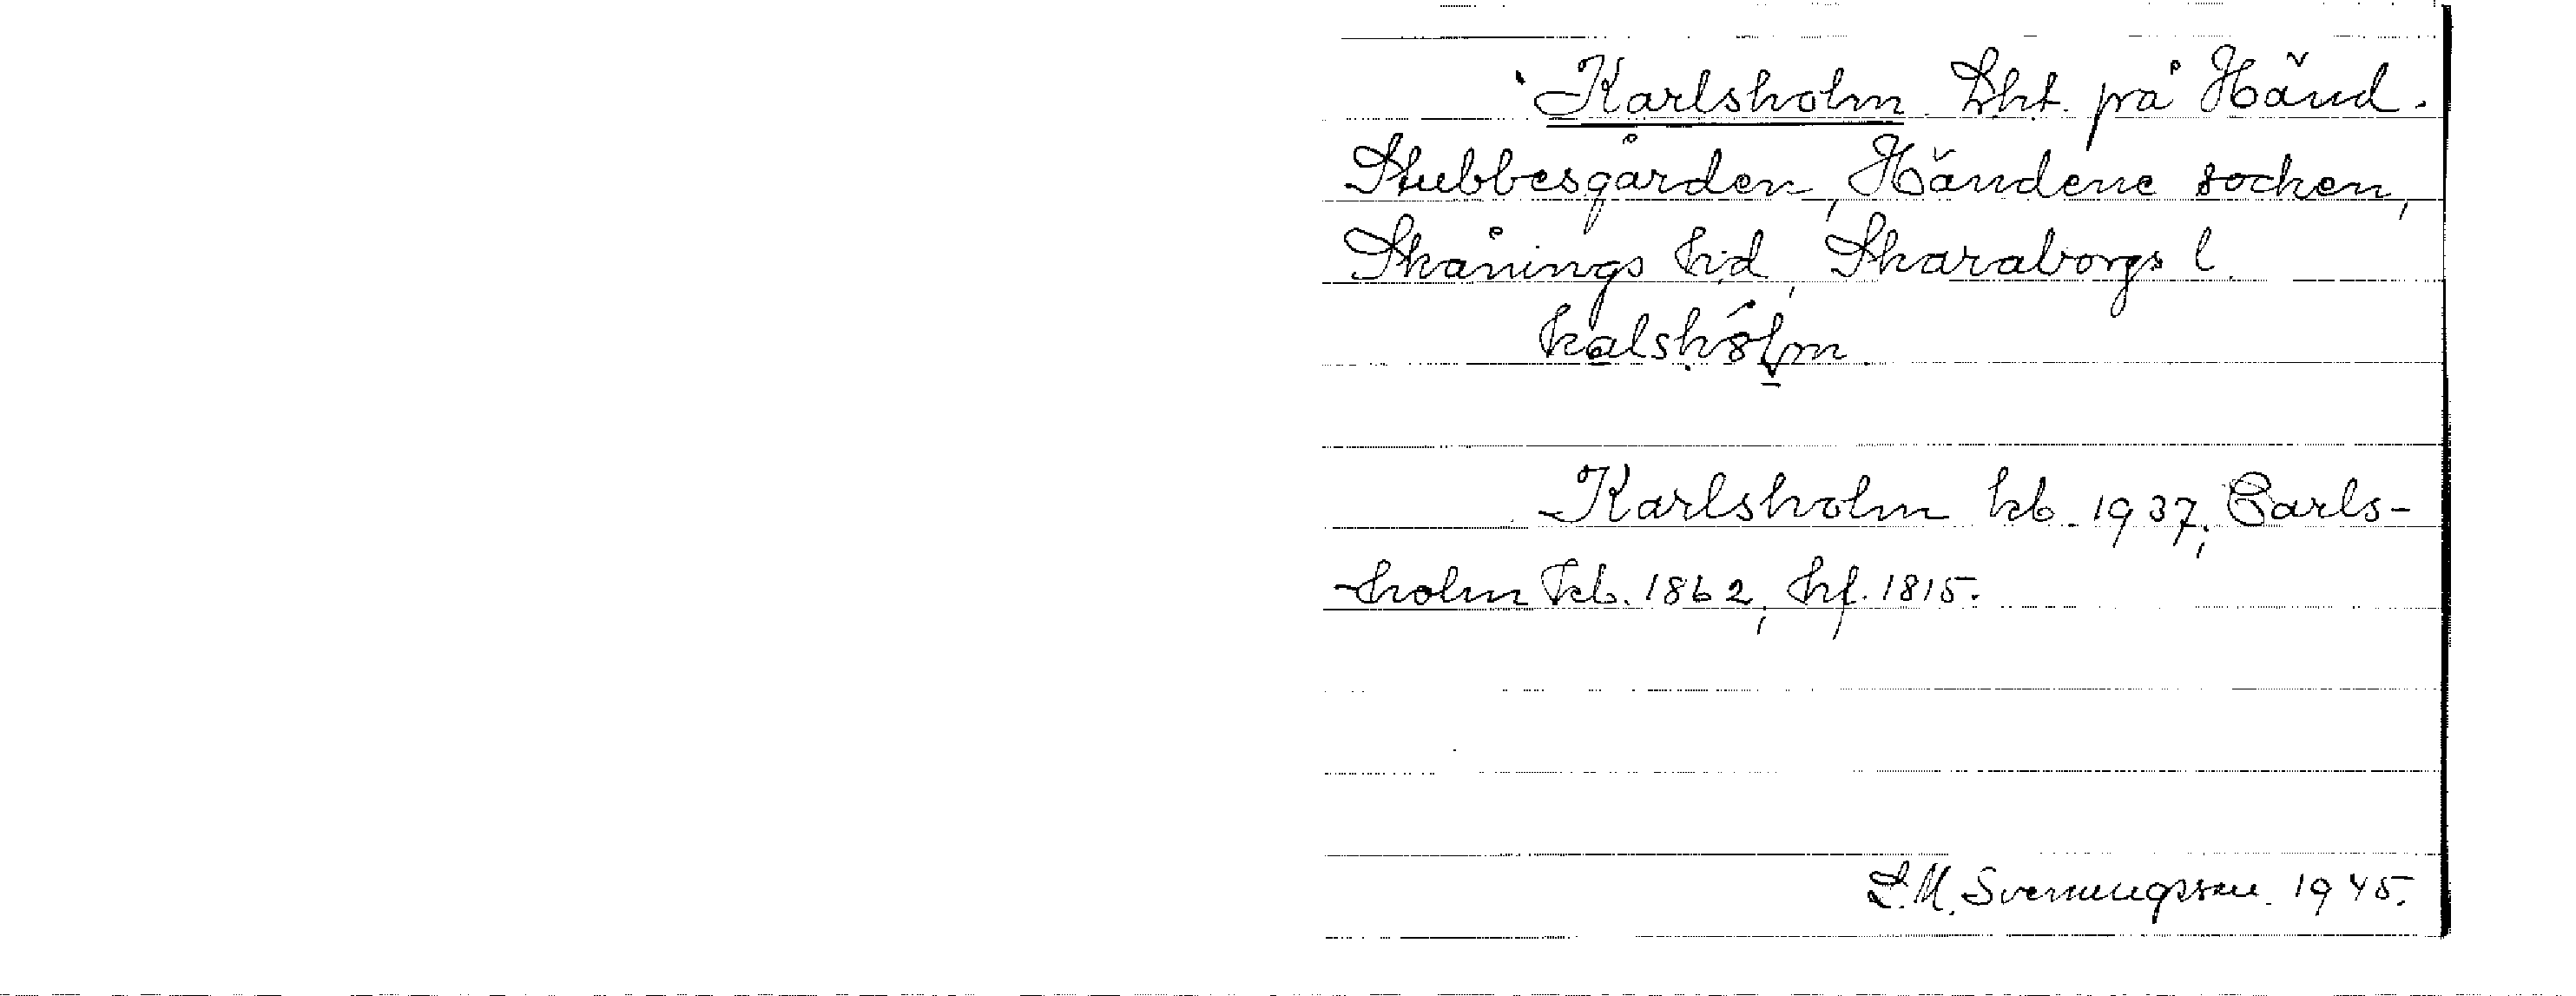 Karlsholm. Lht. på Händ.
Stubbesgården, Händene socken,
Skånings hd, Skaraborgs l.
kalshólm
Karlsholm kb. 1937; Carls-
holm kb. 1862, hf. 1815.
S. M. Svenungsson. 1945.